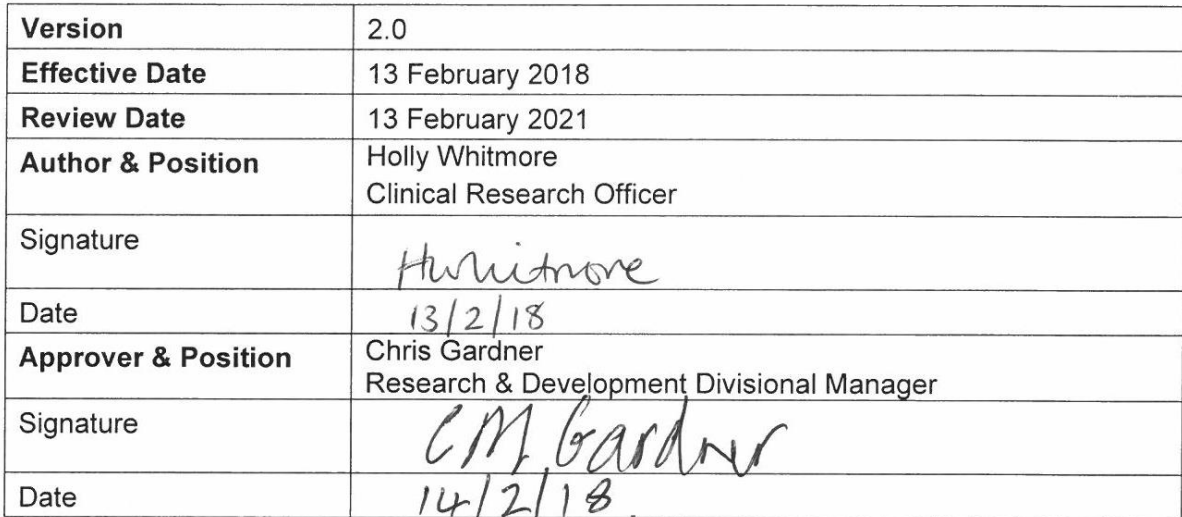 Version 2.0
Effective Date 13 February 2018
Review Date 13 February 2021
Author & Position Holly Whitmore
Clinical Research Officer
Signature HWhitmore
Date 13/2/18
Approver & Position Chris Gardner
Research & Development Divisional Manager
Signature CM Gardner
Date 14/2/18